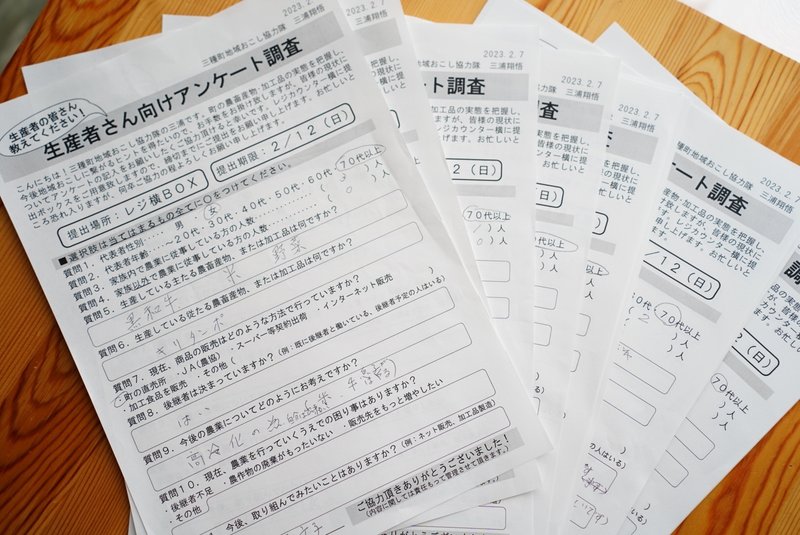 2023.2.7
三種町地域おこし協力隊 三浦翔悟
生産者の皆さん
教えてください!
生産者さん向けアンケート調査
こんにちは!三種町地域おこし協力隊の三浦です。町の農畜産物・加工品の実態を把握し、
今後地域おこしに繋がるヒントを得たいので、お手数をお掛け致しますが、皆様の現状に
ついてアンケートの記入をお願いしたくご協力頂けると幸いです。レジカウンター横に提
出ボックスをご用意致しますので、締切までにご提出をお願い申し上げます。お忙しいと
ころ恐れ入りますが、何卒ご協力の程よろしくお願い申し上げます。
提出場所:レジ横BOX
提出期限:2/12(日)
■選択肢は当てはまるもの全てに○をつけてください。
質問1.代表者性別……男 女
質問2.代表者年齢……20代・30代・40代・50代・60代・70代以上
質問3.家族内で農業に従事している方の人数…………( )人
質問4.家族以外で農業に従事している方の人数…………( 0 )人
質問5.生産している主たる農畜産物、または加工品は何ですか?
黒和牛 米 野菜
質問6.生産している従たる農畜産物、または加工品は何ですか?
キリタンポ
質問7.現在、商品の販売はどのような方法で行っていますか?
・町の直売所 ・JA(農協) ・スーパー等契約出荷 ・インターネット販売
・加工食品を販売 ・その他( )
質問8.後継者は決まっていますか?(例:既に後継者と働いている、後継者予定の人はいる)
はい
質問9.今後の農業についてどのようにお考えですか?
高冷化の
質問10.現在、農業を行っていくうえでの困り事はありますか?
・後継者不足 ・農作物の廃棄がもったいない ・販売先をもっと増やしたい
・その他
今後、取り組んでみたいことはありますか?(例:ネット販売、加工品製造)
ご協力頂きありがとうございました!
(内容に関しては責任もって管理させて頂きます。)
2023.2.7
三種町地域おこし協力隊 三浦翔悟
ケート調査
2023.2.7
三浦翔悟
調査
2023.2.7
三浦翔悟
2023.2.7
三浦翔悟
ート調査
/12(日)
70代以上